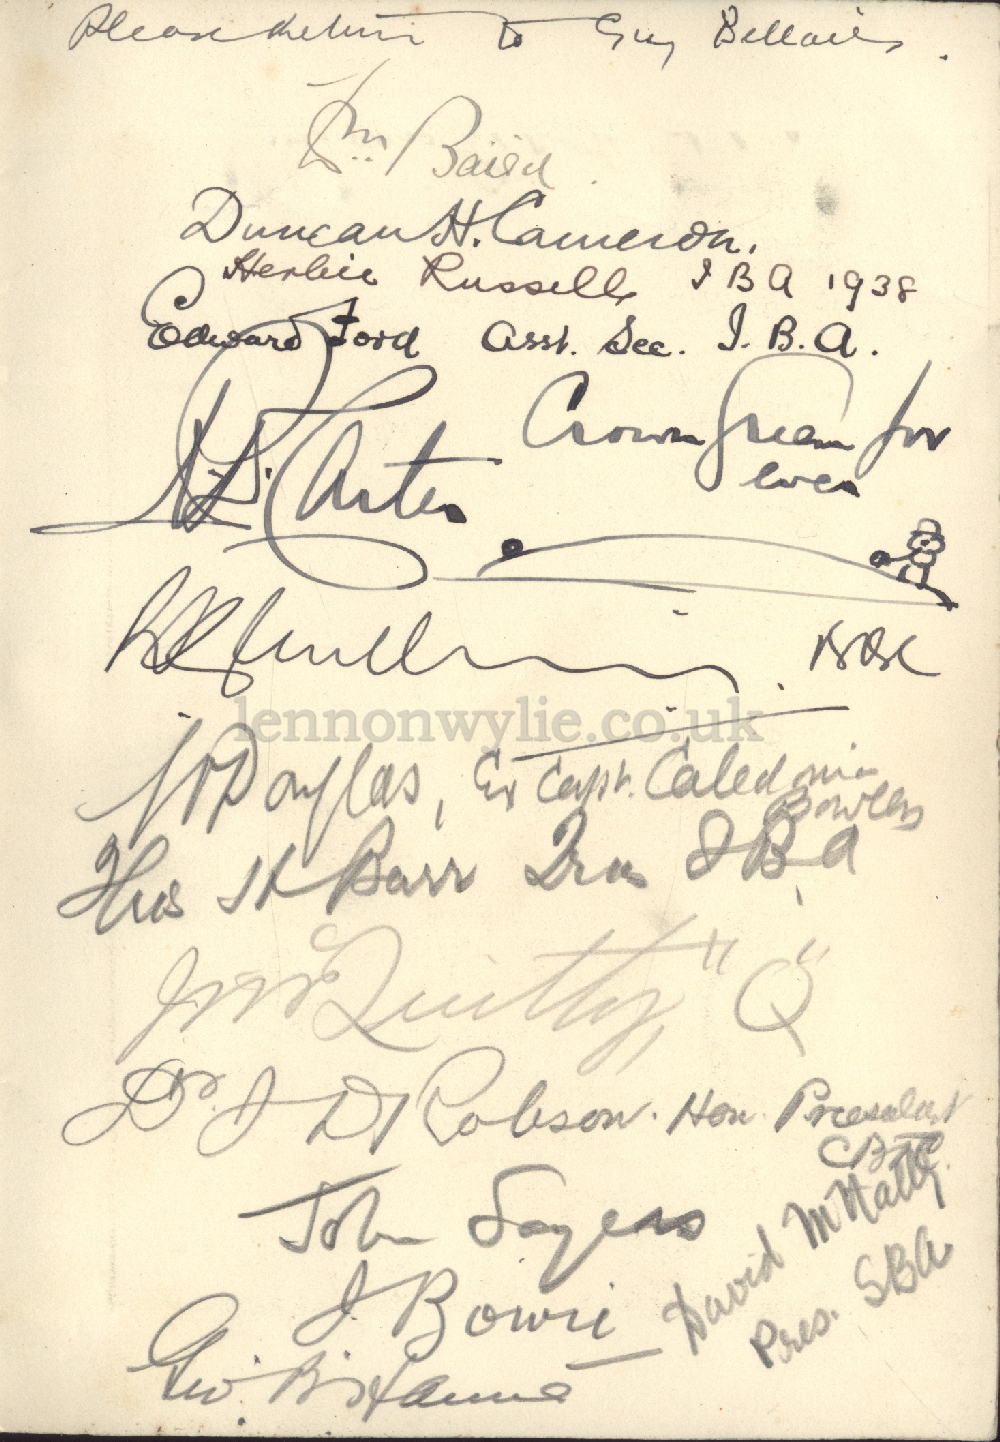 Please Return to Guy Bellairs.
Wm Baird.
Duncan H. Cameron.
Herbie Russell I B A 1938
Edward Ford Asst. Sec. I. B. A.
Carter Crown Green for
ever
lennonwylie.co.uk
Douglas, Ex Capt. Caledonia
Bowlers
Thos H Barr I B A
McQuitty "Q"
Dr. J D Robson. Hon. President
David McNatty.
John Sayers
Pres. SBA
J. Bowie
Geo.